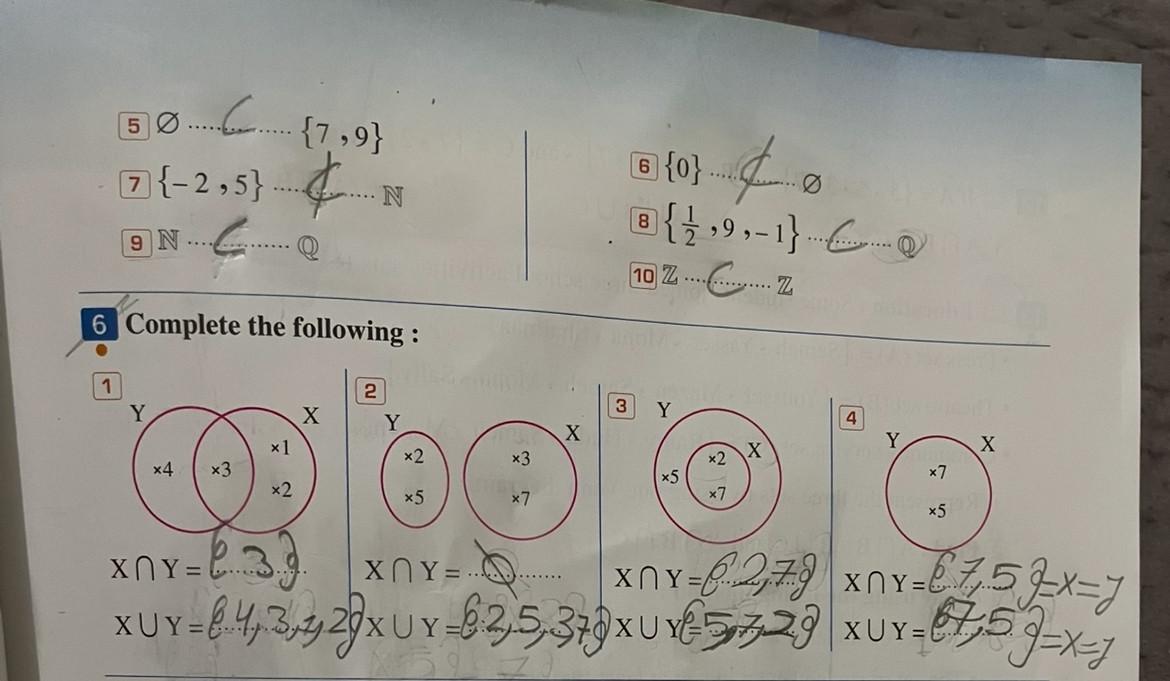 5 ∅ ....⊂.... {7 , 9}
6 {0} ....⊄.... ∅
7 {−2 , 5} ....⊄.... ℕ
8 {1/2 , 9 , −1} ....⊂.... ℚ
9 ℕ ....⊂.... ℚ
10 ℤ ....⊂.... ℤ
6 Complete the following :
1
Y X
×4 ×3 ×1
×2
X ∩ Y = {3}
X ∪ Y = {4,3,1,2}
2
Y X
×2 ×3
×5 ×7
X ∩ Y = ∅
X ∪ Y = {2,5,3,7}
3
Y X
×5 ×2
×7
X ∩ Y = {2,7}
X ∪ Y = {5,7,2}
4
Y X
×7
×5
X ∩ Y = {7,5}=X=y
X ∪ Y = {7,5}=X=y